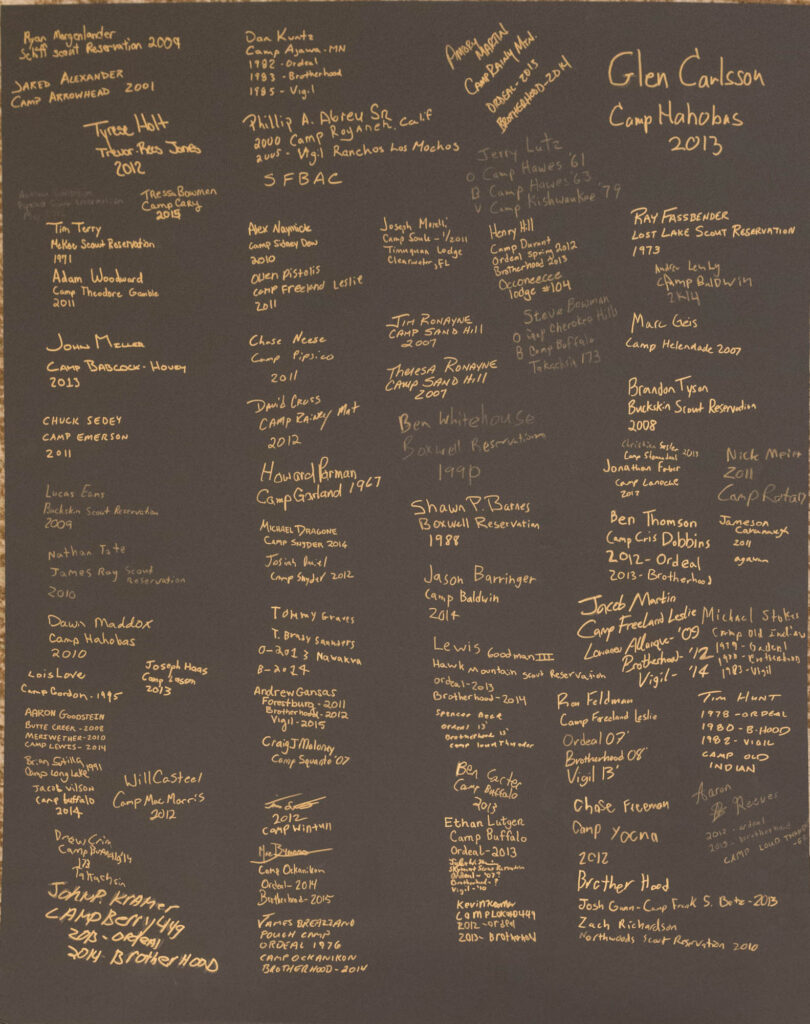 Ryan Morgenlander
Schiff Scout Reservation 2009
JARED ALEXANDER
CAMP ARROWHEAD 2001
Tyrese Holt
Trevor-Rees Jones
2012
Tressa Bowmen
Camp Cary
2015
Tim Terry
McKee Scout Reservation
1971
Adam Woodward
Camp Theodore Gamble
2011
JOHN MELLER
CAMP BABCOCK-HOVEY
2013
CHUCK SEDEY
CAMP EMERSON
2011
Lucas Eans
Buckskin Scout Reservation
2009
Nathan Tate
James Ray Scout
Reservation
2010
Dawn Maddox
Camp Hahobas
2010
Lois Love
Camp Gordon - 1995
Joseph Haas
Camp
2013
AARON GOODSTEIN
BUTTE CREEK - 2008
MERIWETHER - 2010
CAMP LEWIS - 2014
Brian 1991
Camp Long Lake
Jacob Wilson
Camp buffalo
2014
Will Casteel
Camp Mac Morris
2012
Drew
Camp
173
Takachsin
JOHN P. KRAMER
CAMP BERRY 449
2013 - ORDEAL
2014 BROTHERHOOD
Dan Kuntz
Camp Ajawa - MN
1982 - Ordeal
1983 - Brotherhood
1985 - Vigil
Phillip A. Abreu Sr
2000 Camp Royaneh, Calif
2005 - Vigil Ranchos Los Mochos
SFBAC
Alex
Camp Sidney Dew
2010
Owen Pistolis
Camp Freeland Leslie
2011
Chase Neese
Camp Pipsico
2011
David Cross
CAMP RAINEY Mnt
2012
Howard Parman
Camp Garland 1967
MICHAEL DRAGONE
CAMP SNYDER 2014
Josiah
Camp Snyder 2012
Tommy Graves
T. Brady Saunders
O-2013 Nawakwa
B-2014
Andrew Gansas
Forestburg - 2011
Brotherhood - 2012
Vigil - 2015
Craig J Maloney
Camp Squanto '07
2012
CAMP WINTUN
Camp Ockanikon
Ordeal - 2014
Brotherhood - 2015
JAMES BREAZZANO
POUCH CAMP
ORDEAL 1976
CAMP OCKANIKON
BROTHERHOOD - 2014
MARTIN
CAMP RAINY Mtn.
ORDEAL - 2013
BROTHERHOOD - 2014
Jerry Lutz
O Camp Hawes '61
B Camp Hawes '63
V Camp Kishwaukee '79
Joseph Morelli
Camp Soule - 1/2011
Timuquan Lodge
Clearwater, FL
Henry Hill
Camp Durant
Ordeal Spring 2012
Brotherhood 2013
Occoneechee
lodge #104
Steve Bowman
O Camp Cherokee Hills
B Camp Buffalo
Takachsin 173
JIM RONAYNE
CAMP SAND HILL
2007
THERESA RONAYNE
CAMP SAND HILL
2007
Ben Whitehouse
Boxwell Reservation
1990
Shawn P. Barnes
Boxwell Reservation
1988
Jason Barringer
Camp Baldwin
2014
Lewis Goodman III
Hawk Mountain Scout Reservation
Ordeal - 2013
Brotherhood - 2014
Spencer
Ordeal 13'
Brotherhood 13'
Camp Loud Thunder
Ben Carter
Camp Buffalo
2013
Ethan Lutger
Camp Buffalo
Ordeal - 2013
Ordeal - '07?
Brotherhood - ?
Vigil - '10
Kevin
Camp
2012 - ordeal
2013 - Brotherhood
Glen Carlsson
Camp Hahobas
2013
RAY FASSBENDER
LOST LAKE SCOUT RESERVATION
1973
Andrew
CAMP BALDWIN
2K14
Marc Geis
Camp Helendade 2007
Brandon Tyson
Buckskin Scout Reservation
2008
Christian
Camp 2013
Jonathan Faber
Camp Lanoche
2013
Nick
2011
Camp Rotary
Ben Thomson
Camp Cris Dobbins
2012 - Ordeal
2013 - Brotherhood
Jameson
Cavanaugh
2011
Jacob Martin
Camp Freeland Leslie
Ordeal - '09
Brotherhood - '12
Vigil - '14
Michael Stokes
Camp Old Indian
1979 - Ordeal
Brotherhood
1983 - Vigil
Ron Feldman
Camp Freeland Leslie
Ordeal 07'
Brotherhood 08'
Vigil 13'
TIM HUNT
1978 - ORDEAL
1980 - B-HOOD
1982 - VIGIL
CAMP OLD
INDIAN
Chase Freeman
Camp Yocna
2012
Aaron
Reeves
2012 - ordeal
2013 - brotherhood
CAMP LOUD
Brother Hood
Josh Gunn - Camp Frank S. Betz - 2013
Zach Richardson
Northwoods Scout Reservation 2010